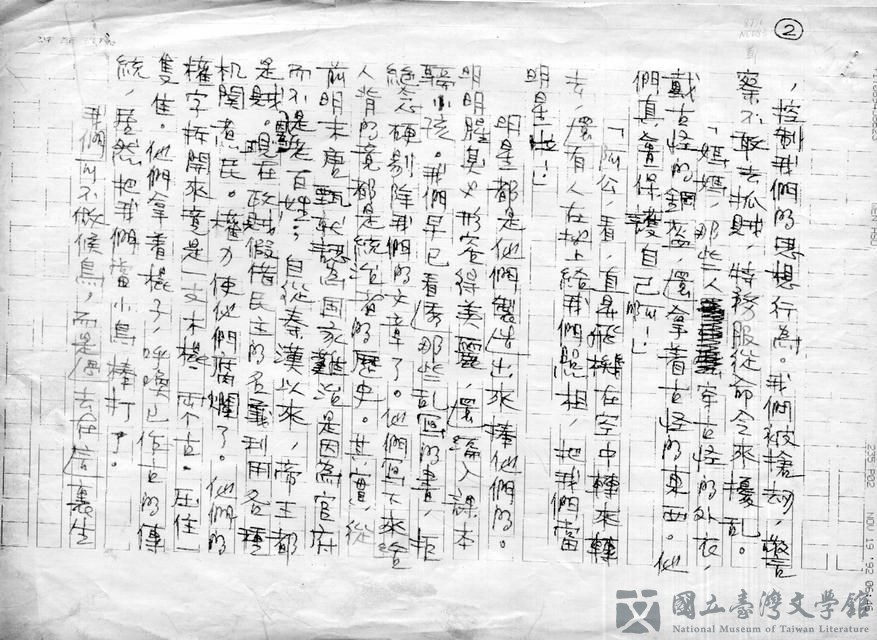 2
，控制我們的思想行為。我們被搶劫，警
察不敢去抓賊，特務服從命令來擾亂。
「媽媽，那些人穿古怪的外衣，
戴古怪的鋼盔，還拿着古怪的東西。他
們真會保護自己啊！」
「阿公，看，直昇飛機在空中轉來轉
去，還有人在地上給我們照相，把我們當
明星啦！」
明星都是他們製造出來捧他們的。
明明腥臭必形容得美麗，還編入課本
騙小孩。我們早已看透那些亂寫的書，拒
絕念硬剔除我們的文章了。他們寫下來給
人背的竟都是統治者的歷史。其實，從
前明末唐甄就認為國家難治是因為官府
而不是老百姓；自從秦漢以來，帝王都
是賊。現在政賊假借民主的名義利用各種
机關煮民。權力使他們腐爛了。他們的
權字拆開來竟是一支木樁，兩个口。压住一
隻隹。他們拿着樁子，呼喚已作古的傳
統，居然把我們當小鳥棒打了。
我們可不做候鳥，而是過去在這裏生
國立臺灣文學館
National Museum of Taiwan Literature
235 P02 NOV 19 '92 06:46